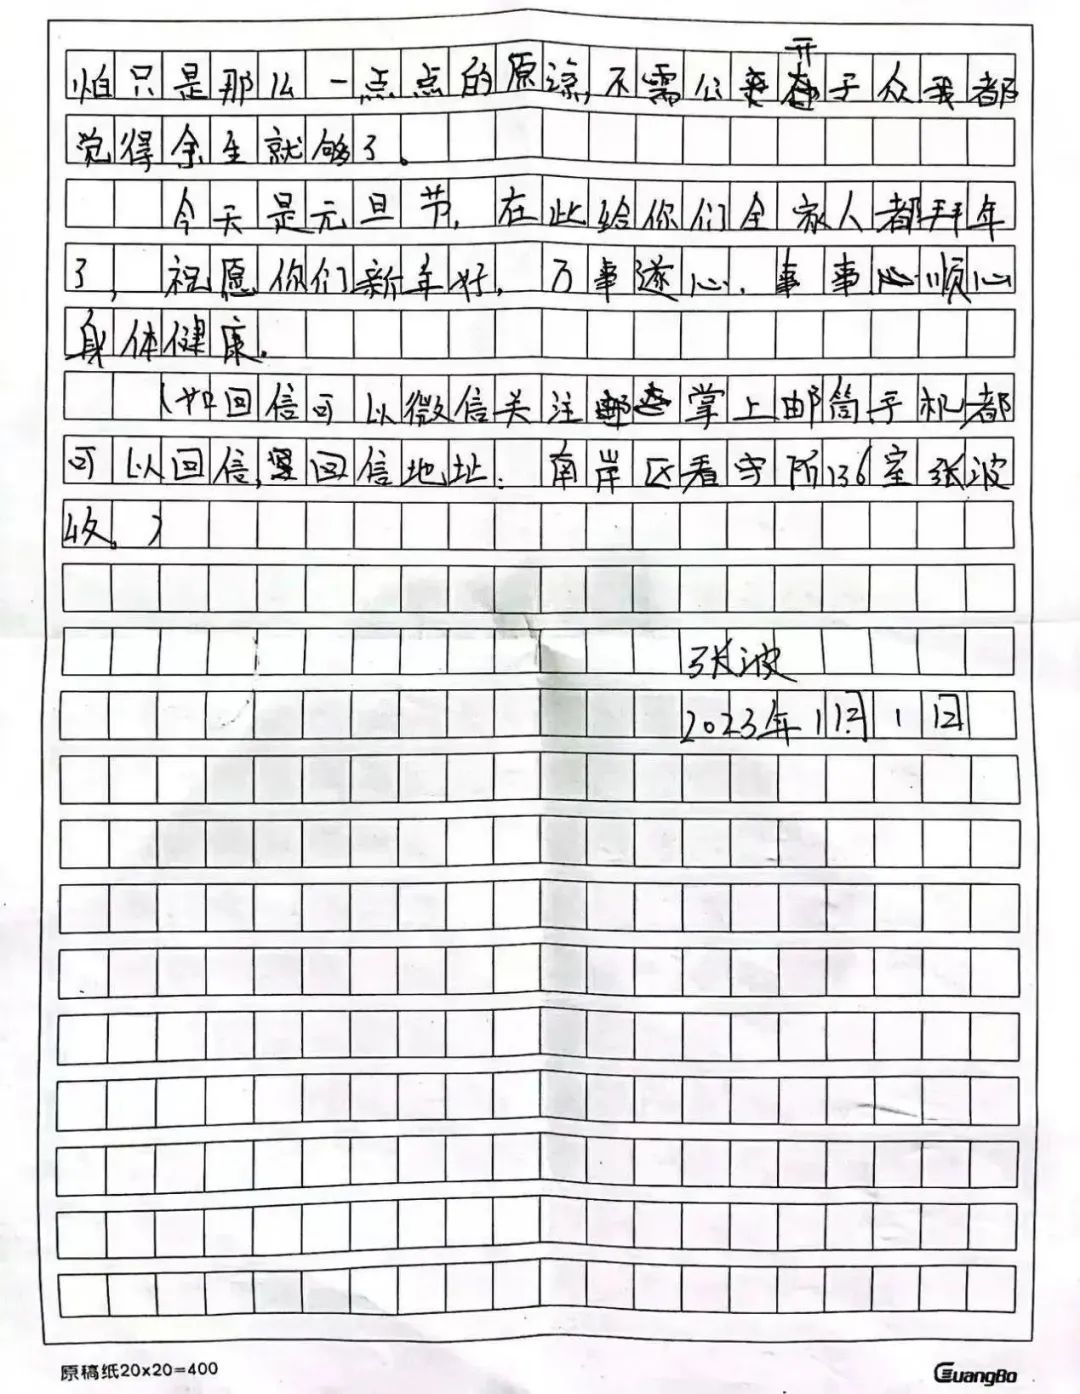 怕只是那么一点点的原谅,不需公开于众我都
觉得余生就够了。
今天是元旦节,在此给你们全家人都拜年
了,祝愿你们新年好,万事遂心、事事顺心
身体健康.
(如回信可以微信关注掌上邮筒手机都
可以回信,回信地址:南岸区看守所136室张波
收。)
张波
2023年1月1日
原稿纸20×20=400
GuangBo